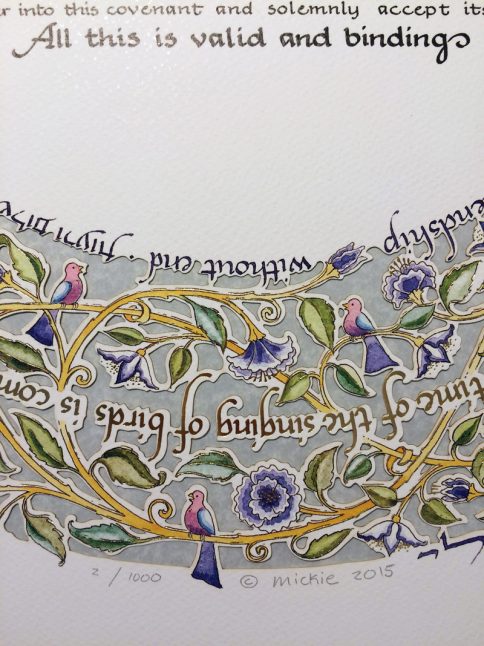 r into this covenant and solemnly accept its
All this is valid and binding
endship without end .
time of the singing of birds is com
2 / 1000 © mickie 2015